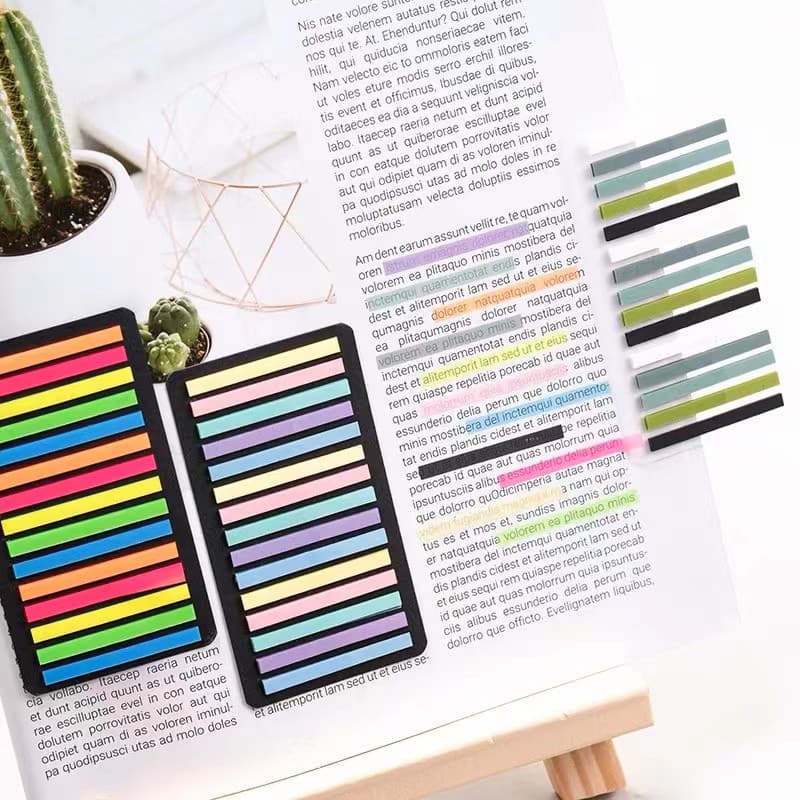 Nis nate volore
dolestia velenem autatus restia
nos qui te. At. Ehenduntur? Qui dolut rem
hilit, qui quiducia nonseriaecae vitem.
Nam velecto eic to ommoloris eatem faci
ut voles eture modis serro erchil illores-
tis event et officimus, Ibusdae di quibus,
oditaeces ea dia a sequunt veligniscia vol-
labo. Itaecep raeria netum et dunt acipid
quunt as ut quiberorae escilluptiy evel
in con eatque dolutem porrovitatis volor
aut qui odipiet quam di as volores iminul-
pa quodipsusci utas ad molo doles in re
moluptatusam velecta doluptiis essimos
moloribus.
Am dent earum assunt vellit re, te quam vol-
oren natquatquia
volorem ea plitaquo minis mostibera del
inctemqui quamentotat endis plandis ci-
dest et alitemporit lam sed ut et eius se-
qumagnis dolorer natquatquia volorem
ea plitaqumagnis dolorer natquatquia
volorem ea plitaquo minis mostibera del
inctemqui quamentotat endis plandis ci-
dest et alitemporit lam sed ut et eius sequi
rem quiaspe repelitia porecab id quae aut
quas alibus
essunderio delia perum que dolorro quo
minis mostibera del inctemqui quamento
tat endis plandis cidest et alitemporit lam
se repelitia
porecab id quae aut quas molorrum quia
ipsuntusciis alibus essunderio delia perum
que dolorro quOdicimperia autae magnat
nam qui op-
tus es et mos et, sundiss imagnis dolor-
er natquatquia volorem ea plitaquo minis
mostibera del inctemqui quamentotat en-
dis plandis cidest et alitemporit lam sed ut
et eius sequi rem quiaspe repelitia porecab
id quae aut quas molorrum quia ipsuntus-
ciis alibus essunderio delia perum que
dolorro que officto. Evellignatem liquibus,
cia vollabo. Itaecep raeria netum
et dunt acipid quunt as ut quibero-
rae escilluptae evel in con eatque
dolutem porrovitatis volor aut qui
odipiet quam di as volores iminul-
pa quodipsusci utas ad molo doles
et alitemporit lam sed ut et eius se-